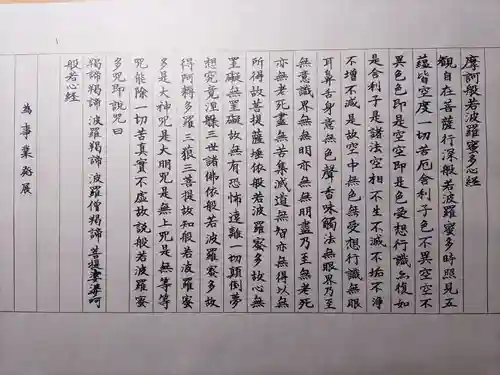 摩訶般若波羅蜜多心経
観自在菩薩行深般若波羅蜜多時照見五
蘊皆空度一切苦厄舎利子色不異空空不
異色色即是空空即是色受想行識亦復如
是舎利子是諸法空相不生不滅不垢不浄
不増不減是故空中無色無受想行識無眼
耳鼻舌身意無色聲香味觸法無眼界乃至
無意識界無無明亦無無明盡乃至無老死
亦無老死盡無苦集滅道無智亦無得以無
所得故菩提薩埵依般若波羅蜜多故心無
罣礙無罣礙故無有恐怖遠離一切顛倒夢
想究竟涅槃三世諸佛依般若波羅蜜多故
得阿耨多羅三藐三菩提故知般若波羅蜜
多是大神咒是大明咒是無上咒是無等等
咒能除一切苦真實不虚故説般若波羅蜜
多咒即説咒曰
羯諦羯諦波羅羯諦波羅僧羯諦菩提
般若心経
為事業発展